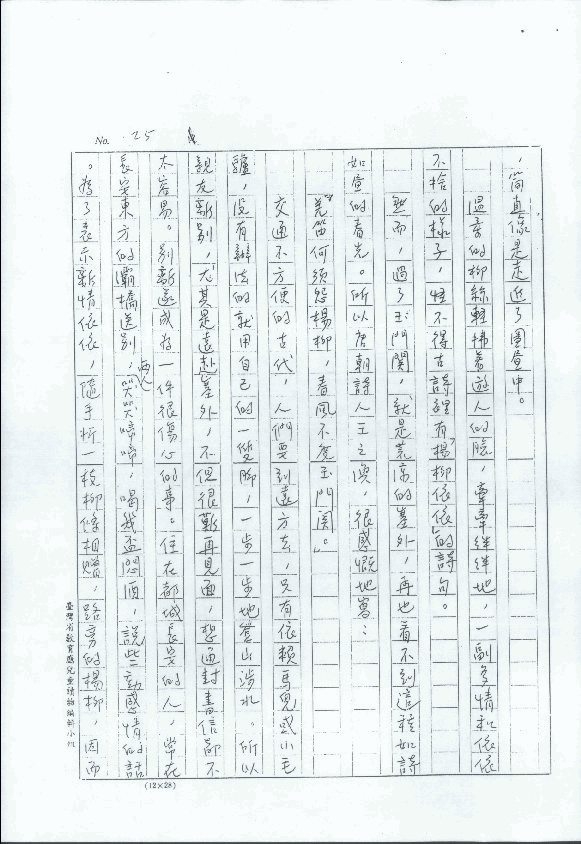 No. 25
，简直像是走近了圖畫中。
溫柔的柳絲輕拂著遊人的臉，牽牽絆絆地，一副多情和依依
不捨的樣子，怪不得古詩裡有「楊柳依依」的詩句。
然而，過了玉門關，就是荒涼的塞外，再也看不到這種如詩
如畫的春光。所以唐朝詩人王之渙，很感慨地寫：
「羌笛何須怨楊柳，春風不度玉門関。」
交通不方便的古代，人們要到遠方去，只有依賴馬兒或小毛
驢，沒有辦法的就用自己的一雙腳，一步一步地登山涉水。所以
親友離別，尤其是遠赴塞外，不但很難再見面，想通封書信都不
太容易。別離遂成為一件很傷心的事。住在都城長安的人，常在
長安東方的灞橋送別，哭哭啼啼，喝幾盃悶酒，說些動感情的話
。為了表示離情依依，隨手折一枝柳條相贈，路旁的楊柳，因而
臺灣省教育廳兒童讀物編輯小組
(12×28)